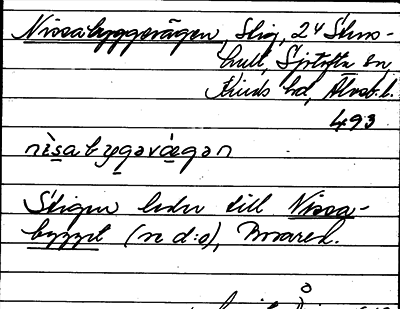 Nissabyggsvägen, Stig, 2 4 Stens-
hult, Sjötofta sn,
Kinds hd, Älvsb. l.
493
nìsabygəvǽgən
Stigen leder till Nissa-
bygget (n d:o), Moared.